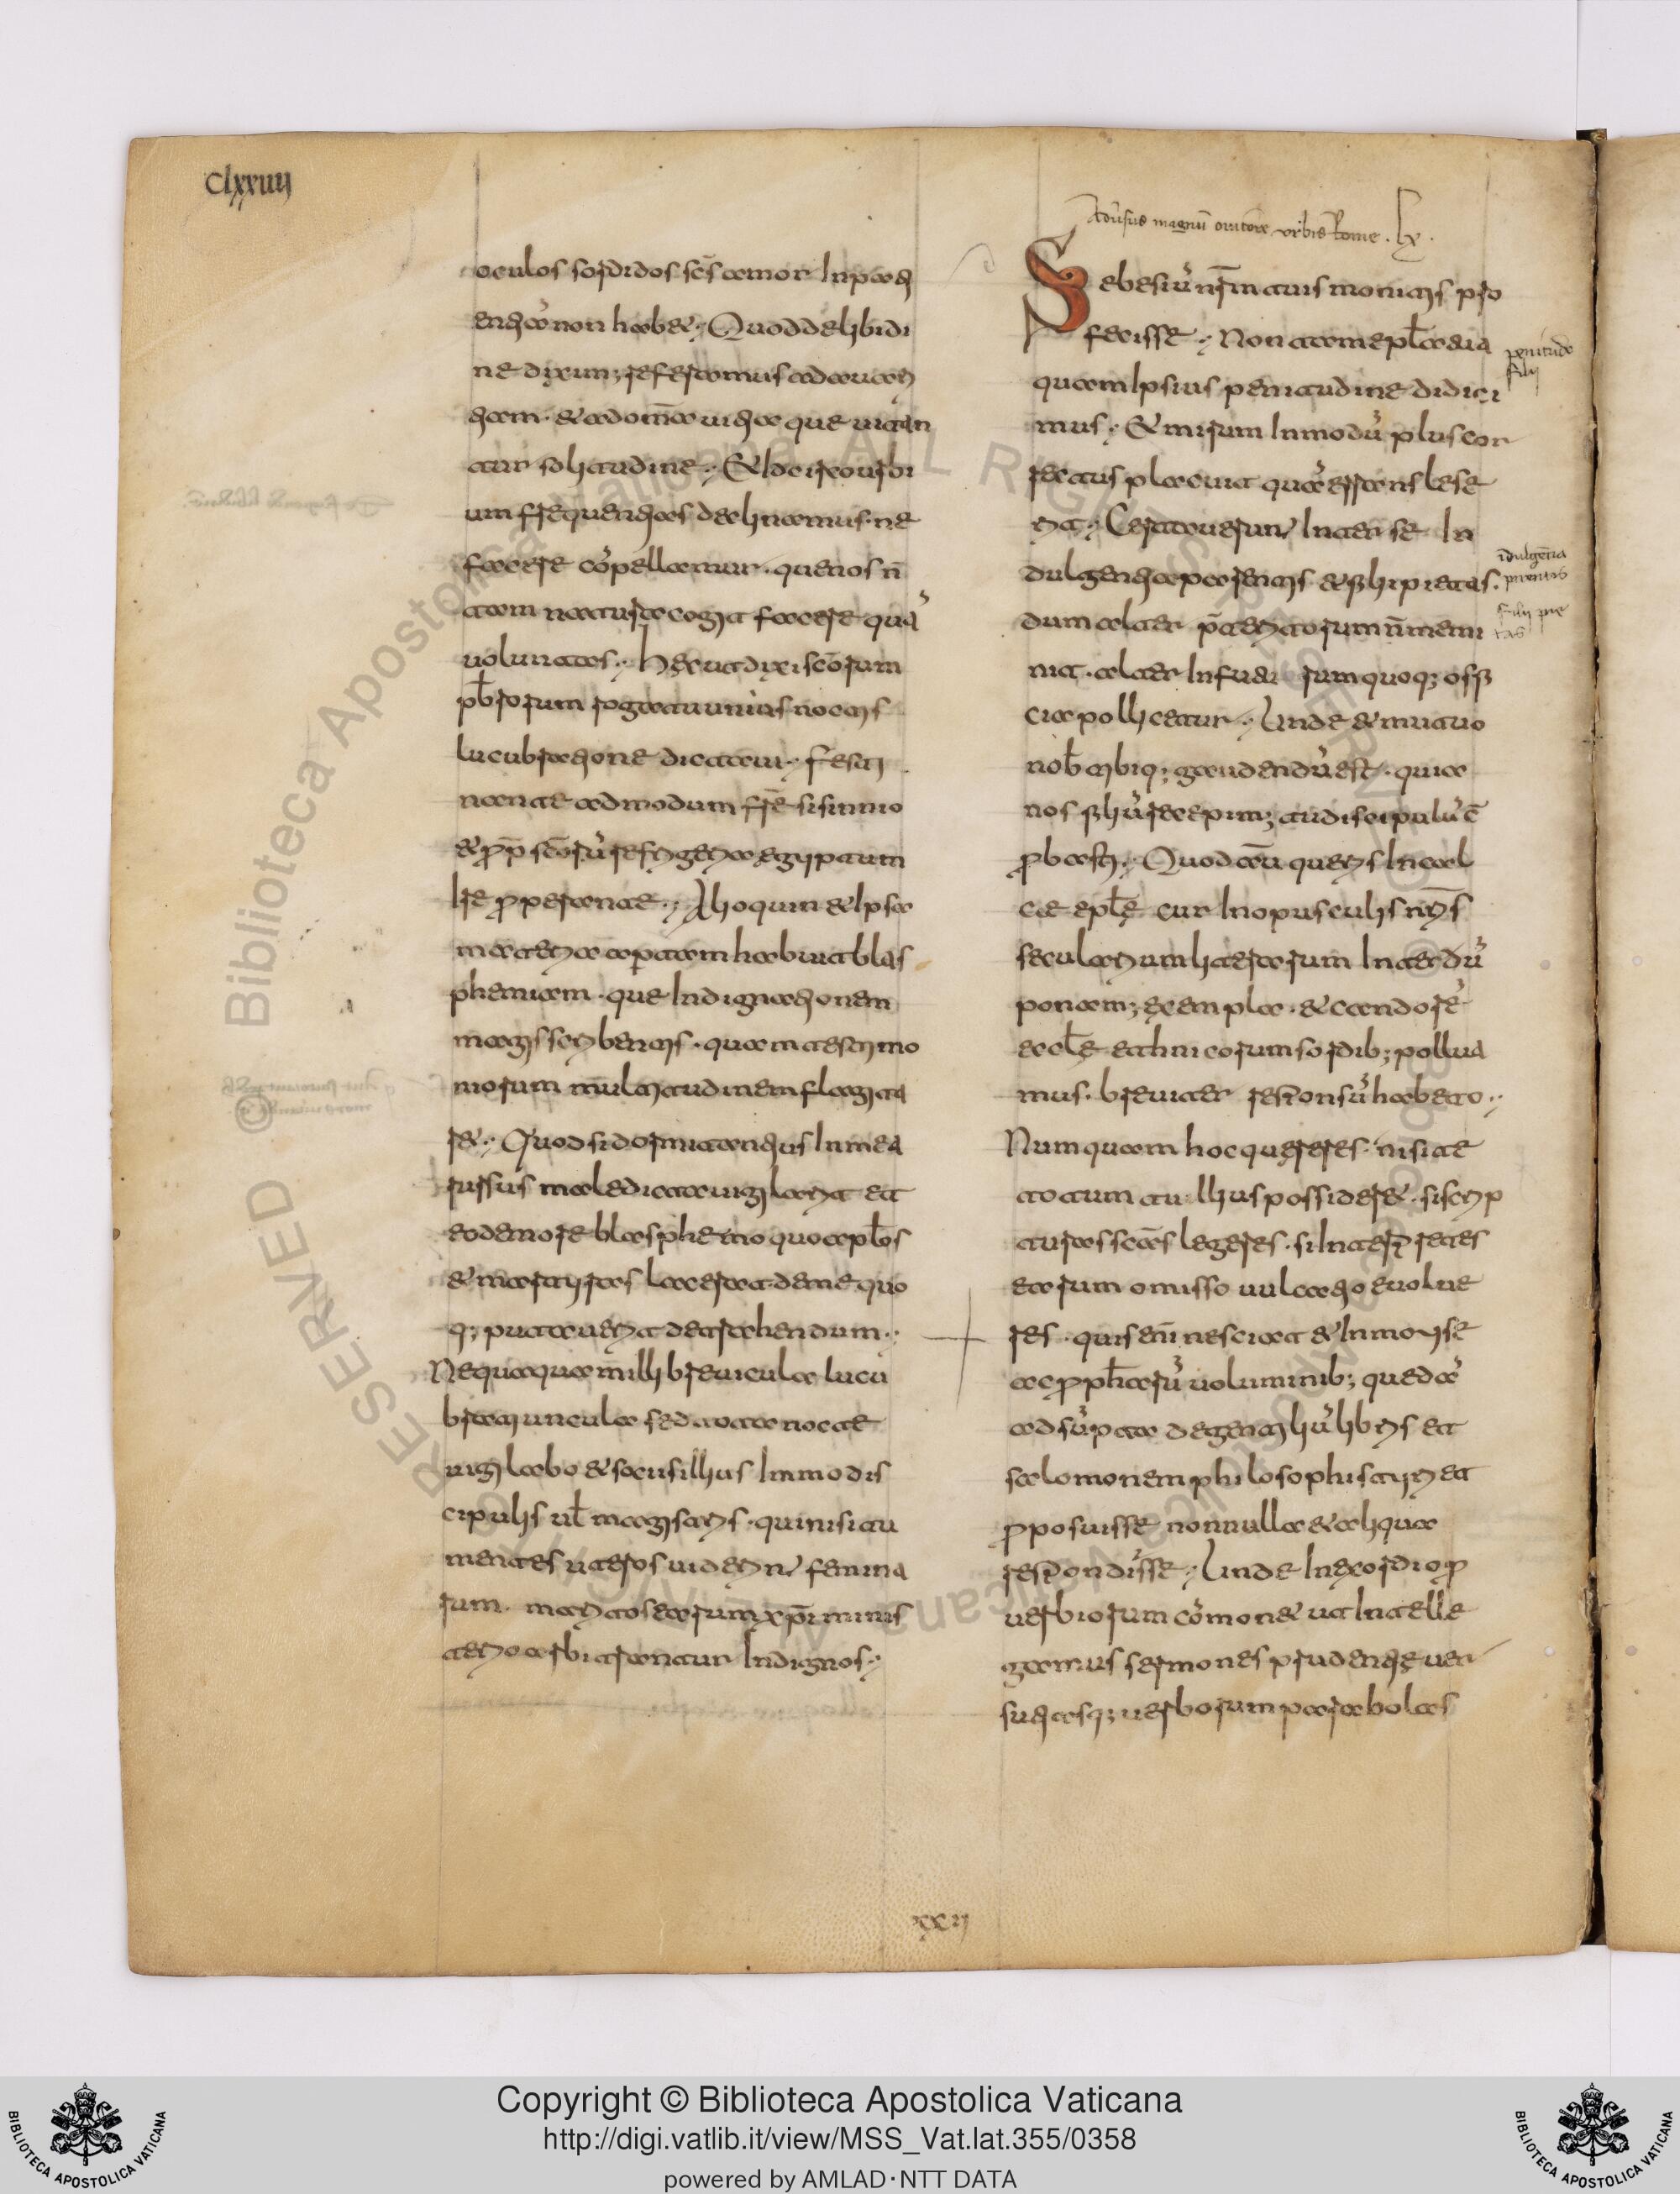 clxxuii
oculos sordidos scs amor In pati
entia non habet ; Quod de libidi
ne diximus; referamus ad auari
tiam . et ad omia uitia que uitan
tur solitudine ; Et Idcirco urbi
um frequentias declinamus . ne
facere cōpellamur . que nos n̄
tam natura cogit facere quā
uoluntas ; hęc ut dixi scorum
pbrorum rogatu unius noctis
lucubratione dictaui ; festi
nante admodum fre sisinnio
et pp scorū refrigeria egyptum
Ire properante ; Alioquin et Ipsa
materia apertam habuit blas
phemiam . que Indignationem
magis scribentis . quam testimo
niorum multitudinem flagita
ret ; Quod si dormitantius In mea
rursus maledicta uigilarit et
eodem ore blasphemo quo aplos
et martyras lacerat de me quo
q; putauerit detrahendum ;
Nequaquam Illi breuicula lucu
bratiuncula sed tota nocte
uigilabo et sociis Illius Immo dis
cipulis ul magistris . qui nisi tu
mentes uteros uiderint femina
rum . maritos earum xpi minis
terio arbitrantur Indignos ;
Aduersus magnū oratore urbis Rome . lx .
Sebesiū nrm tuis monitis pro
fecisse ; Non tam epla tua
quam Ipsius penitudine didici
mus ; Et mirum In modū plus cor
rectus placuit quā errans lese
rit ; Certauerunt Inter se In
dulgentia parentis et filii pietas .
dum alter preteritorum n̄ memi
nit . alter In futurum quoq; offi
cia pollicetur ; Unde et mutuo
nob tibiq; gaudendū est . quia
nos filiū recepim; tu discipulū
probasti ; Quod aut queris In cal
ce eplę cur In opusculis nris
secularium litterarum Interdū
ponam; exempla . et candorē
ecclę ethnicorum sordib; pollua
mus . breuiter responsū habeto ;
Numquam hoc quereres . nisi te
totum tullius possideret . si scrip
turas scas legeres . si Interpretes
earum omisso uulcatio euolue
res . quis eni nesciat et In moyse
ac prophetarū uoluminib; quedā
adsūpta de gentiliū libris et
salomonem philosophis tyri et
proposuisse nonnulla et aliqua
respondisse ; Unde In exordio p
uerbiorum cōmonet ut Intelle
gamus sermones prudentię uer
sutiasq; uerborum parabolas
penitudo
filii
īdulgētia
parentis
filii pie
tas
xxii
Copyright © Biblioteca Apostolica Vaticana
http://digi.vatlib.it/view/MSS_Vat.lat.355/0358
powered by AMLAD·NTT DATA
BIBLIOTECA APOSTOLICA VATICANA
BIBLIOTECA APOSTOLICA VATICANA